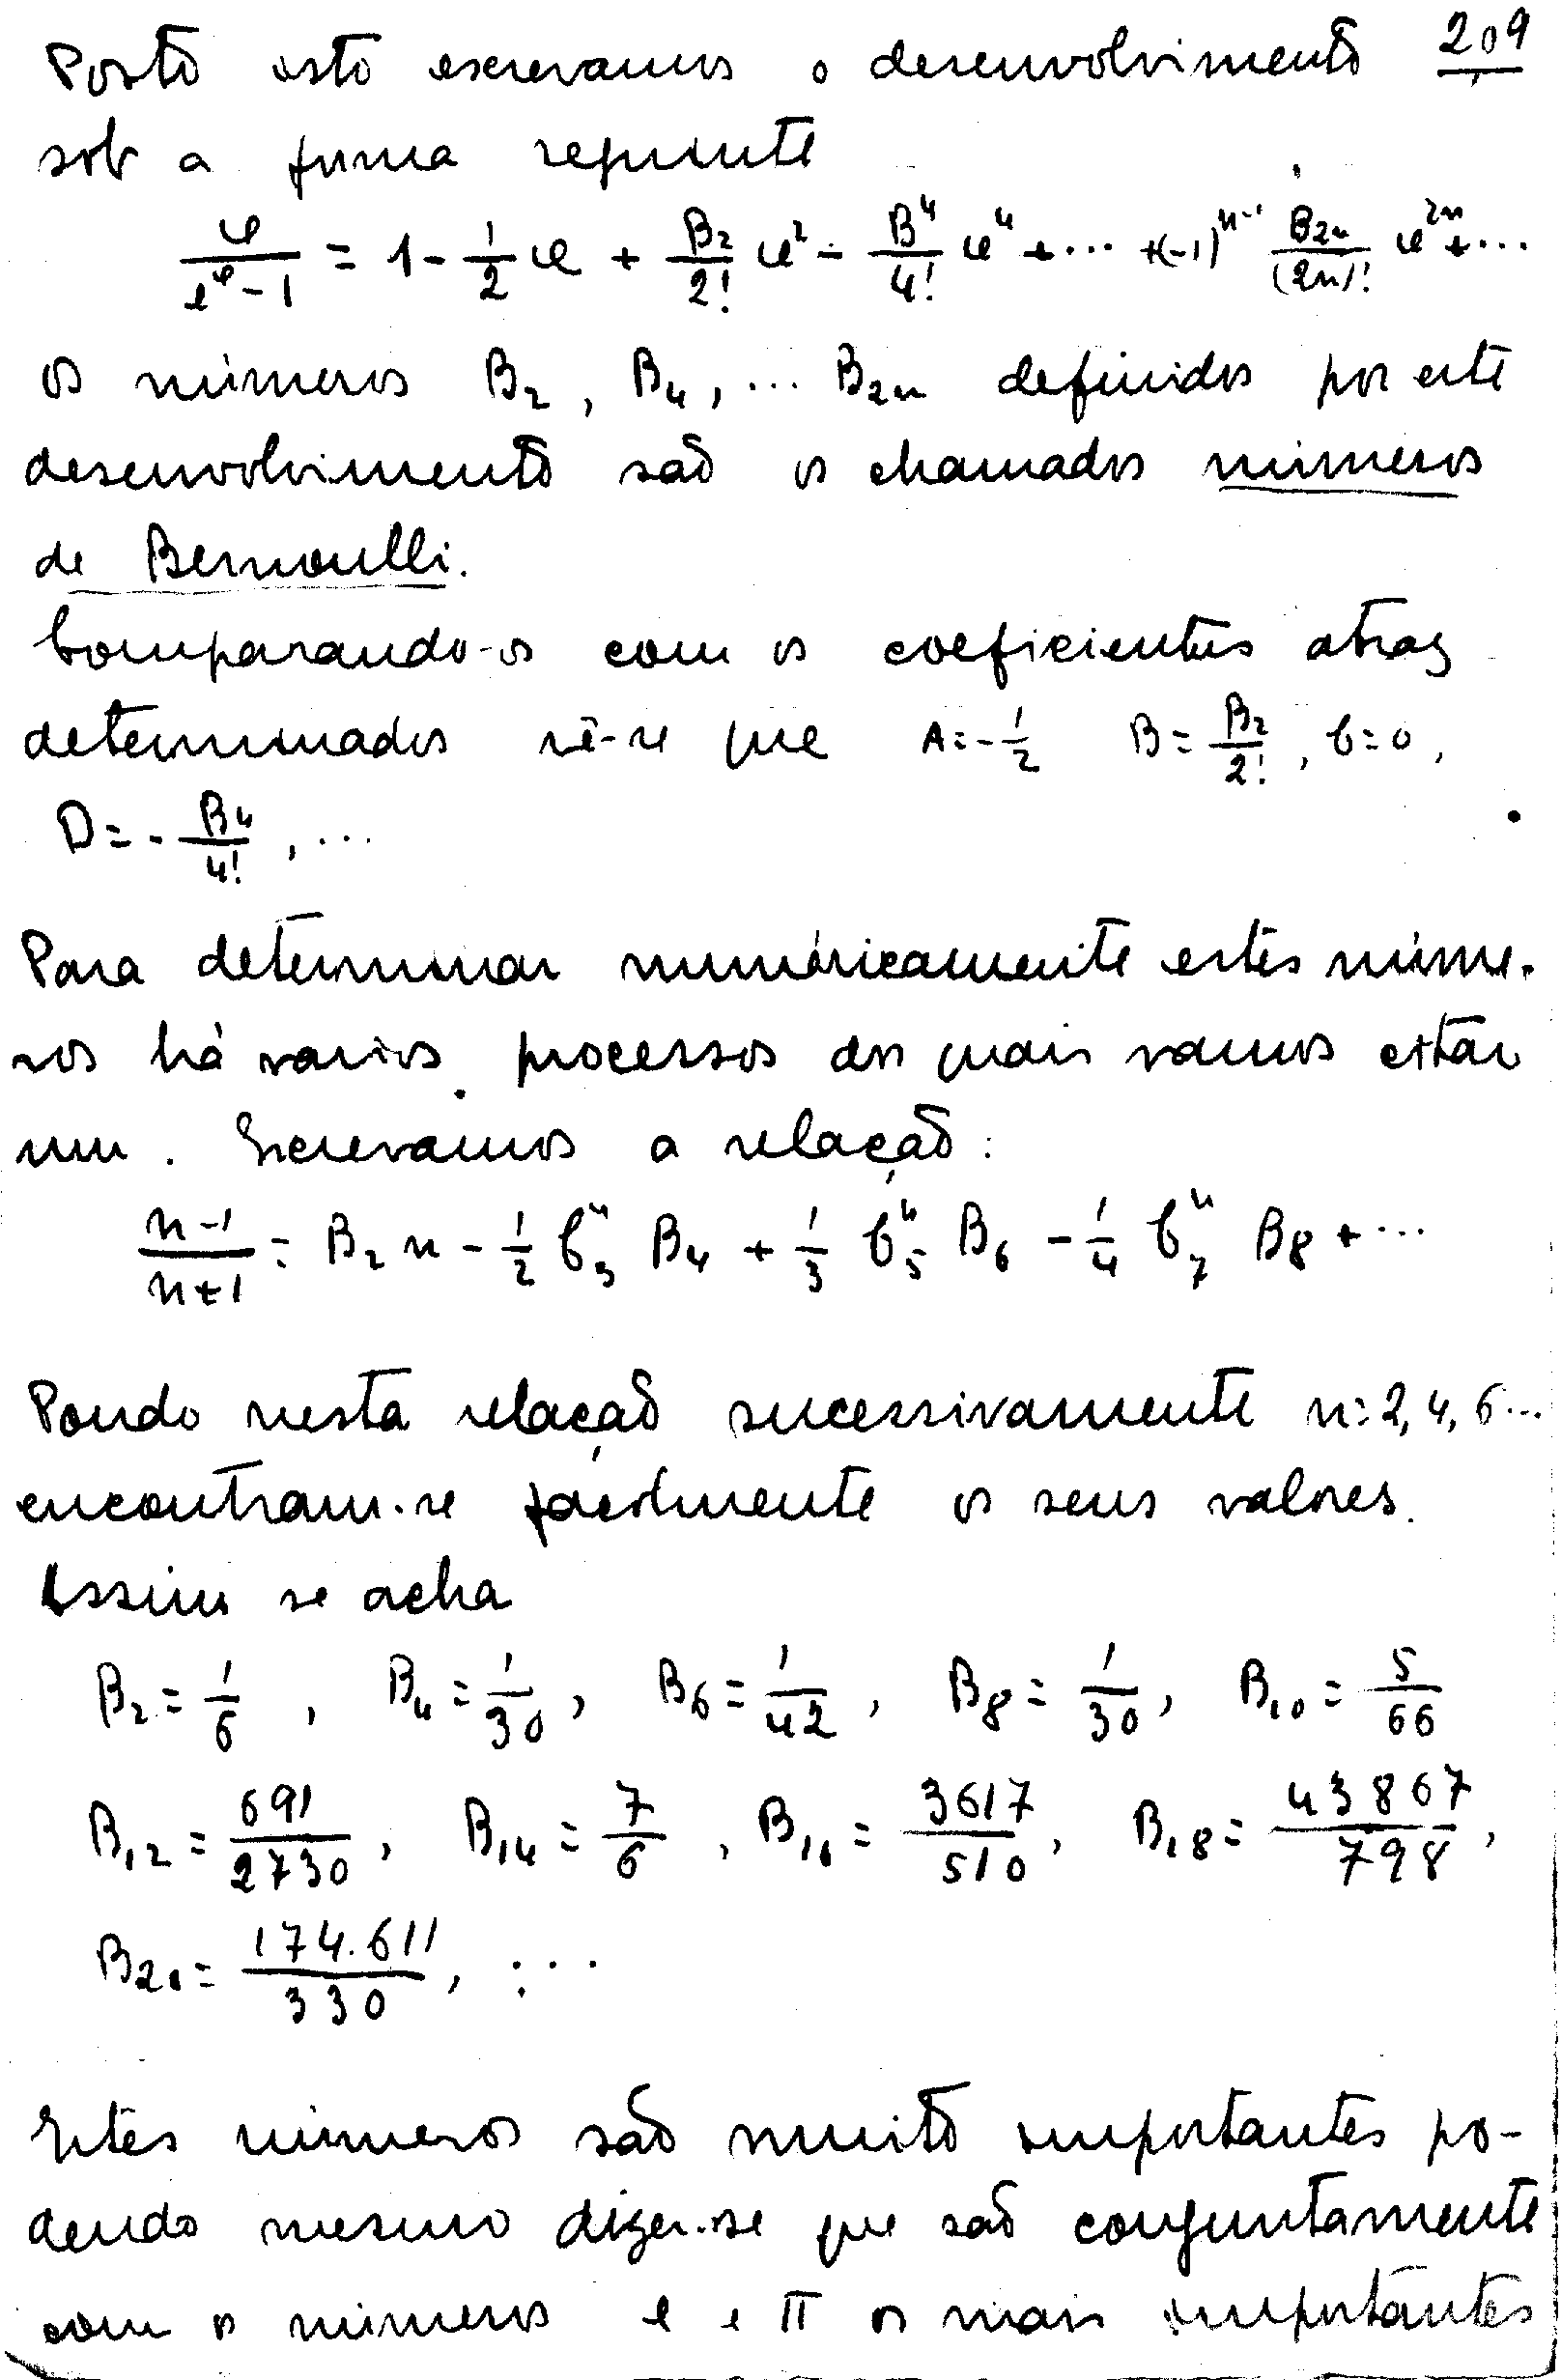 Posto isto escrevamos o desenvolvimento 209
sob a forma seguinte
φ/(e^φ-1) = 1 - 1/2 φ + B₂/2! φ² - B⁴/4! φ⁴ + ... +(-1)^(n-1) B₂ₙ/(2n)! φ²ⁿ + ...
os números B₂, B₄, ... B₂ₙ definidos por este
desenvolvimento são os chamados números
de Bernoulli.
Comparando-os com os coeficientes atraz
determinados vê-se que A = -1/2 B = B₂/2!, C = 0,
D = - B₄/4!, ...
Para determinar numéricamente estes núme-
ros há varios processos dos quais vamos citar
um. Escrevamos a relação:
(n-1)/(n+1) = B₂ n - 1/2 C₃ⁿ B₄ + 1/3 C₅ⁿ B₆ - 1/4 C₇ⁿ B₈ + ...
Pondo nesta relação sucessivamente n = 2, 4, 6 ...
encontram-se facilmente os seus valores.
Assim se acha
B₂ = 1/6, B₄ = 1/30, B₆ = 1/42, B₈ = 1/30, B₁₀ = 5/66
B₁₂ = 691/2730, B₁₄ = 7/6, B₁₆ = 3617/510, B₁₈ = 43867/798,
B₂₀ = 174.611/330, ...
Estes números são muito importantes po-
dendo mesmo dizer-se que são conjuntamente
com os números e e π os mais importantes